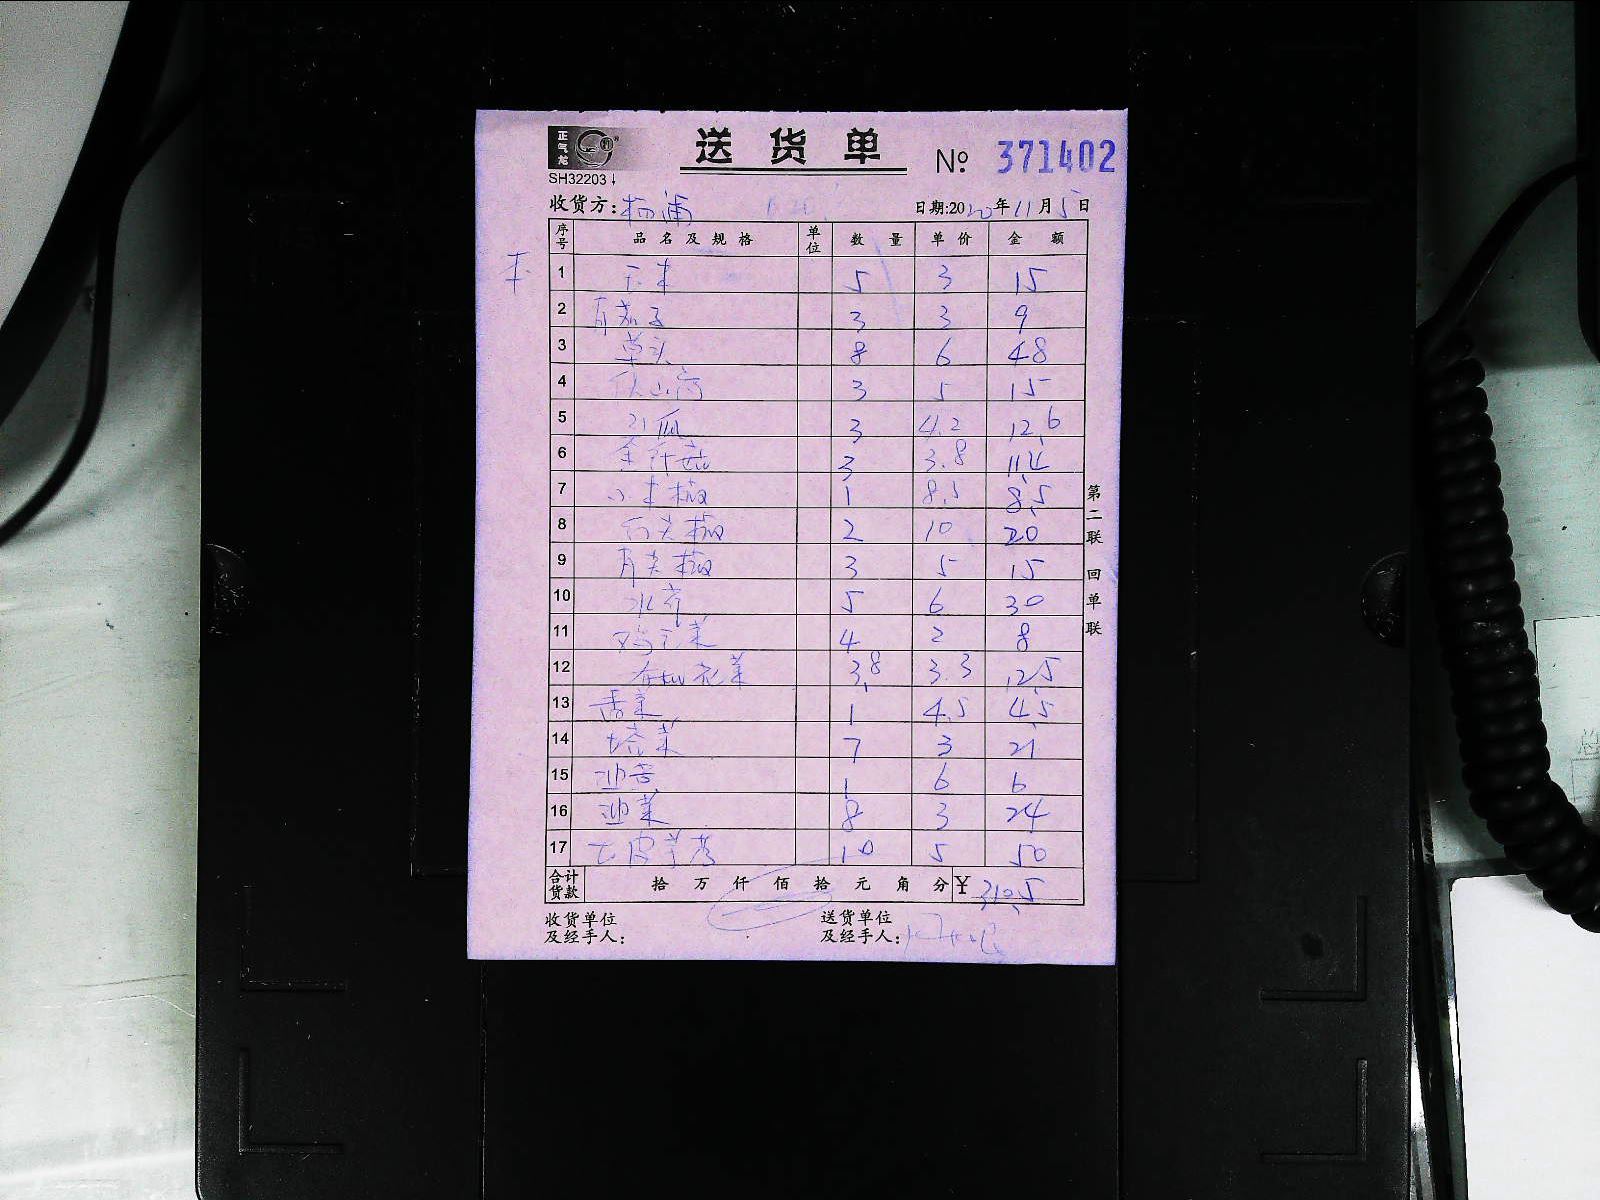 正气龙
送货单 № 371402
SH32203↓
收货方：杨浦 日期:2020年11月5日
序号 品名及规格 单位 数量 单价 金额
1 玉米 5 3 15
2 有茄子 3 3 9
3 草头 8 6 48
4 山药 3 5 15
5 瓜 3 4.2 12.6
6 金针菇 3 3.8 11.4
7 小米椒 1 8.5 8.5
8 尖椒 2 10 20
9 青尖椒 3 5 15
10 水芹 5 6 30
11 鸡毛菜 4 2 8
12 有机花菜 3.8 3.3 12.5
13 香菜 1 4.5 4.5
14 塔菜 7 3 21
15 1 6 6
16 油菜 8 3 24
17 10 5 50
合计货款 拾万仟佰拾元角分 ¥ 310.5
收货单位及经手人：
送货单位及经手人：
第二联 回单联